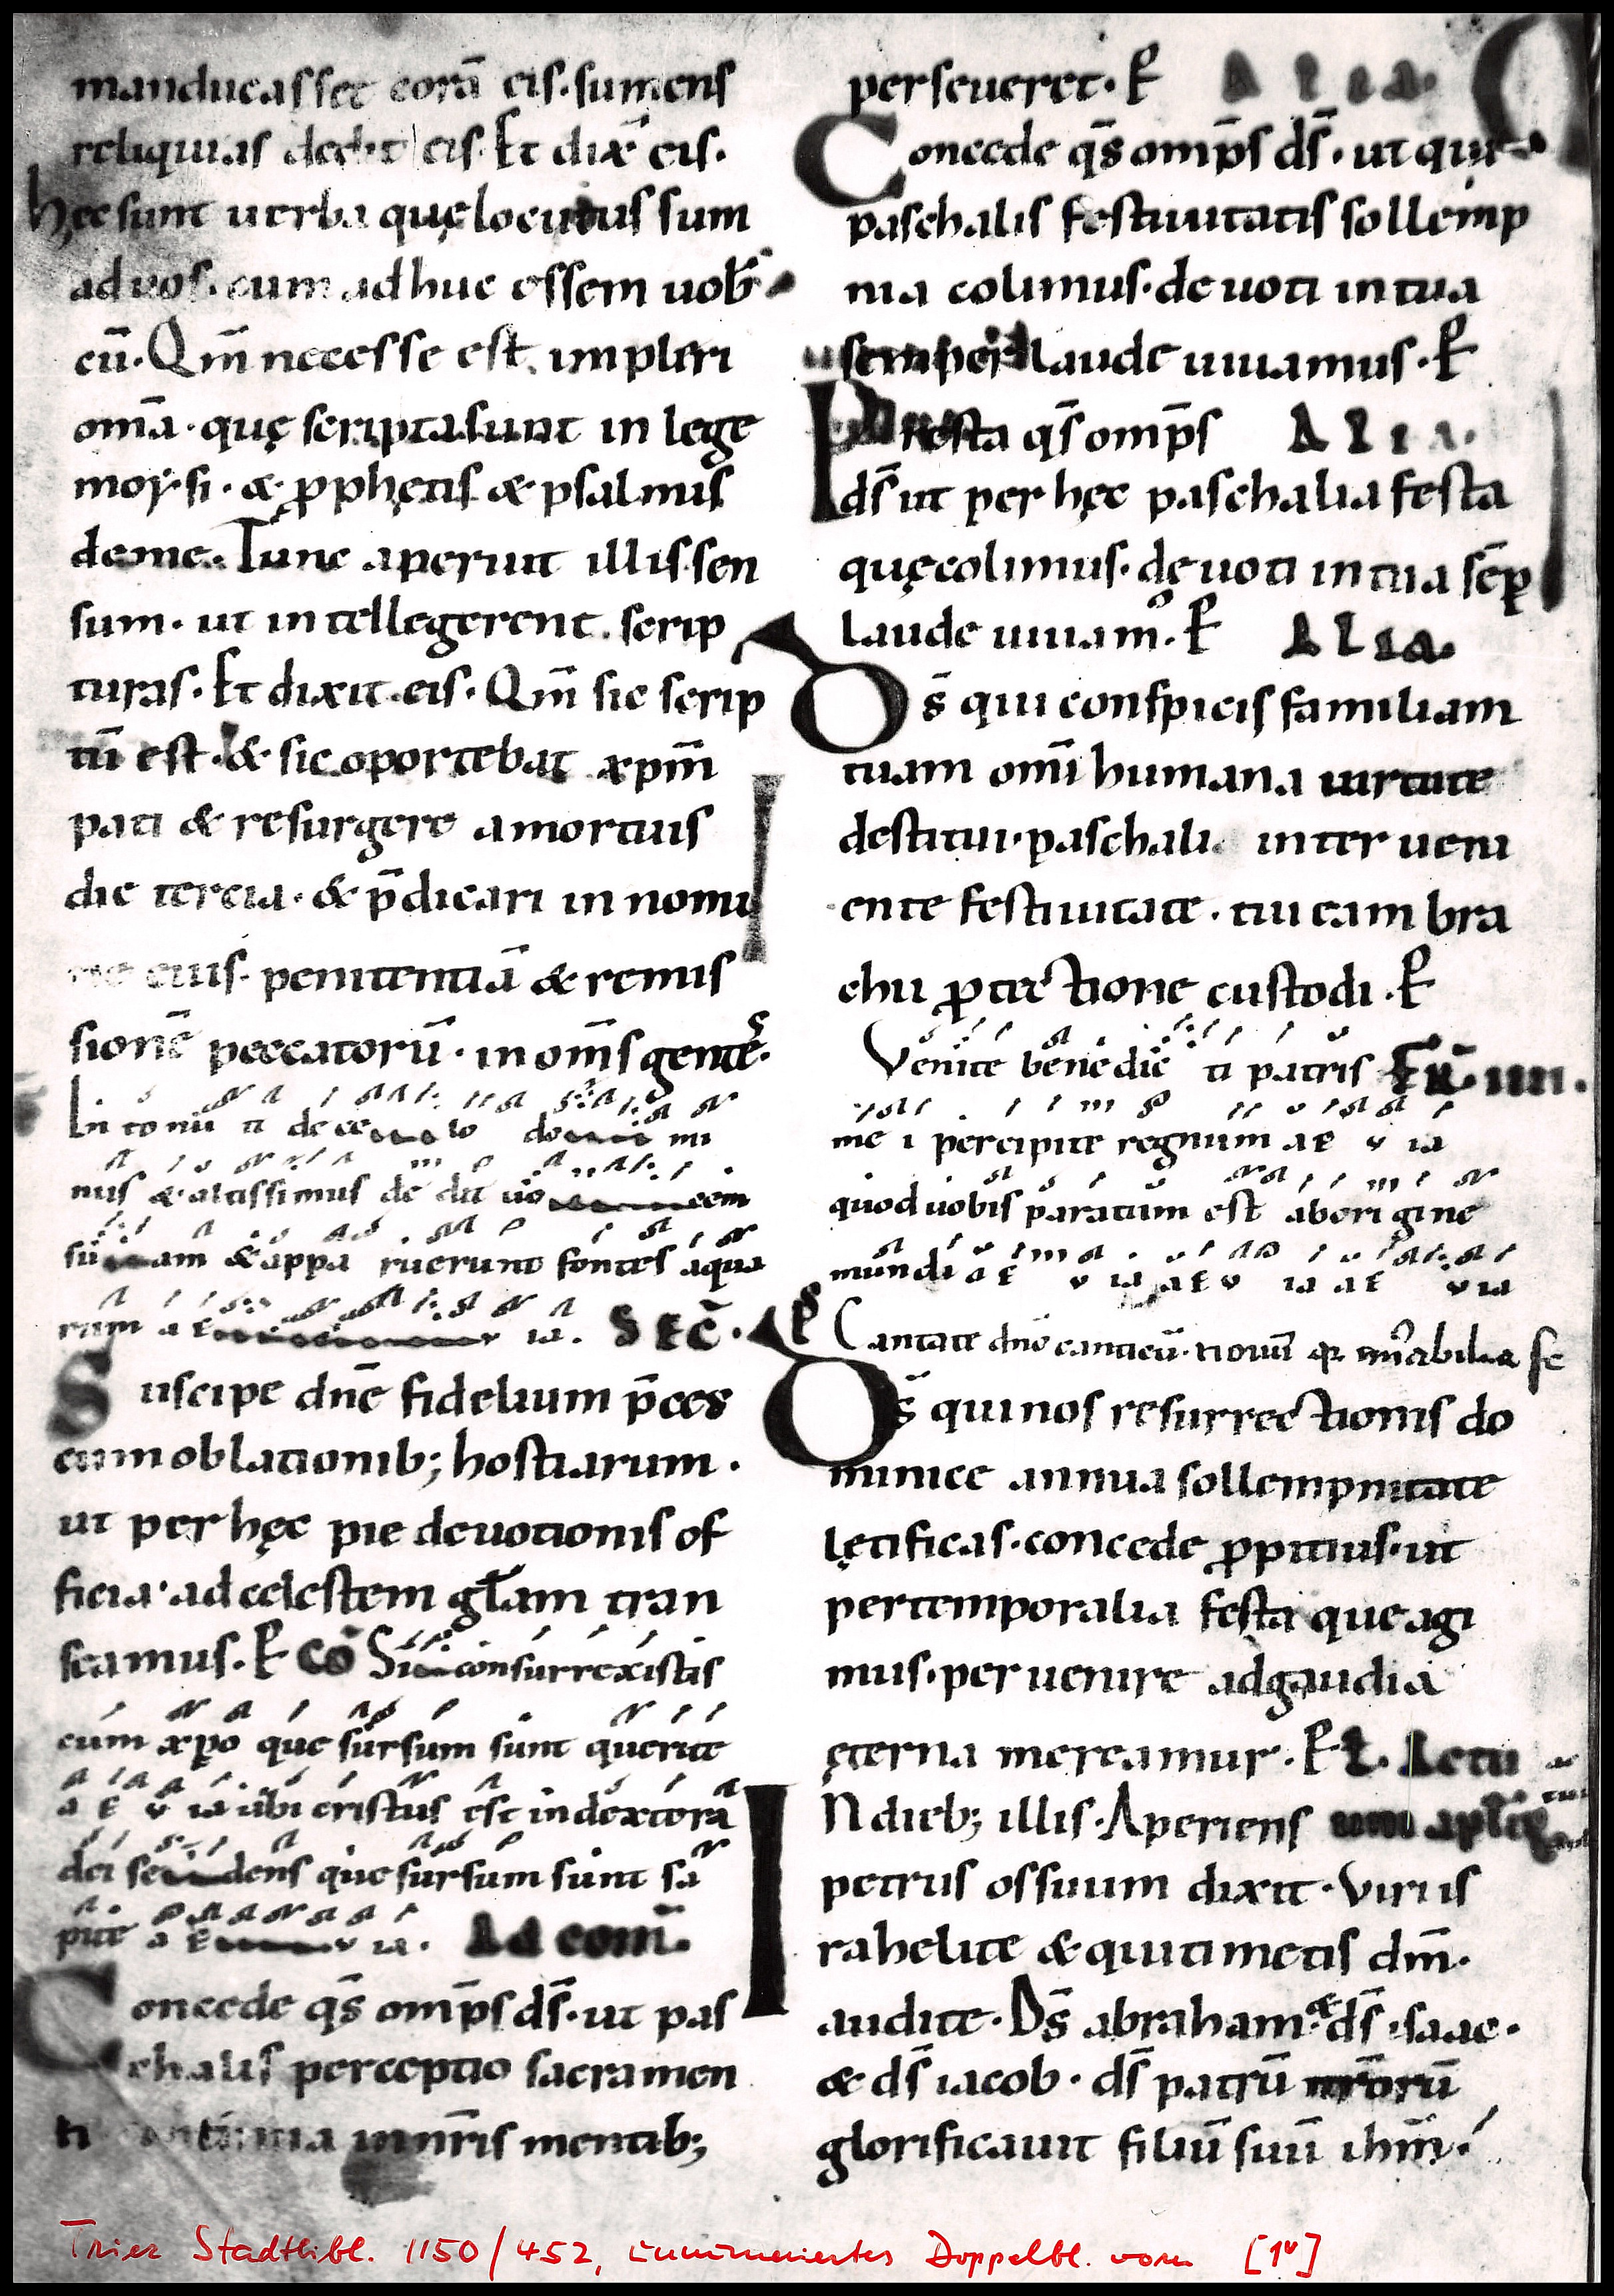 manducasset corā eis. sumens
reliquias dedit eis. Et dix̄ eis.
hęc sunt uerba quę locutus sum
ad uos. cum adhuc essem uob̄
cū. Qm̄ necesse est. impleri
om̄a. quę scripta sunt in lege
moysi. & ꝓphętis & psalmis
de me. Tunc aperuit illis sen
sum. ut intellegerent. scrip
turas. Et dixit eis. Qm̄ sic scrip
tū est. & sic oportebat xpm̄
pati & resurgere a mortuis
die tercia. & p̄dicari in nomi
ne eius. penitentiā & remis
sionē peccatorū. in om̄s gentes.
Intonu it de ce lo do mi
nus & altissimus de dit uo cem
suam & appa ruerunt fontes aqua
rum a e v ia. SEC̄.
Suscipe dn̄e fidelium p̄ces
cum oblationib; hostiarum.
ut per hęc pie deuotionis of
ficia. ad celestem gl̄am tran
seamus. P̱ CŌ Si consurrexistis
cum xp̄o que sursum sunt querite
a e v ia ubi cristus est in dextera
dei se dens que sursum sunt sa
pite a e v ia. Ad com̄.
Concede qs̄ omp̄s ds̄. ut pas
chalis perceptio sacramen
ti continua in nr̄is mentib;
perseueret. P̱ Alia.
Concede qs̄ omp̄s ds̄. ut qui
paschalis festiuitatis sollemp
nia colimus. deuoti in tua
semper laude uiuamus. P̱
Presta qs̄ omp̄s Alia.
ds̄ ut per hęc paschalia festa
quę colimus. deuoti in tua sēp
laude uiuam᾽. P̱ Alia.
Ds̄ qui conspicis familiam
tuam om̄i humana uirtute
destitui. paschali interueni
ente festiuitate. tui eam bra
chii ꝓtectione custodi. P̱
Venite benedic ti patris FR̄. IIII.
me i percipite regnum a e v ia
quod uobis paratum est ab origine
mundi a e v ia a e v ia a e v ia
Ps Cantate dn̄o canticū nouū q mirabilia fe
Ds̄ qui nos resurrectionis do
minice annua sollempnitate
lętificas. concede ꝓpitius. ut
per temporalia festa que agi
mus. peruenire ad gaudia
ęterna mereamur. P̱ Lecti
In dieb; illis. Aperiens
petrus os suum dixit. Viri is
rahelite & qui timetis dm̄.
audite. Ds̄ abraham. & ds̄ isaac.
& ds̄ iacob. ds̄ patrū nr̄orū
glorificauit filiū suū ihm̄.
Trier Stadtbibl. 1150/452, unnumeriertes Doppelbl. vorn [1v]